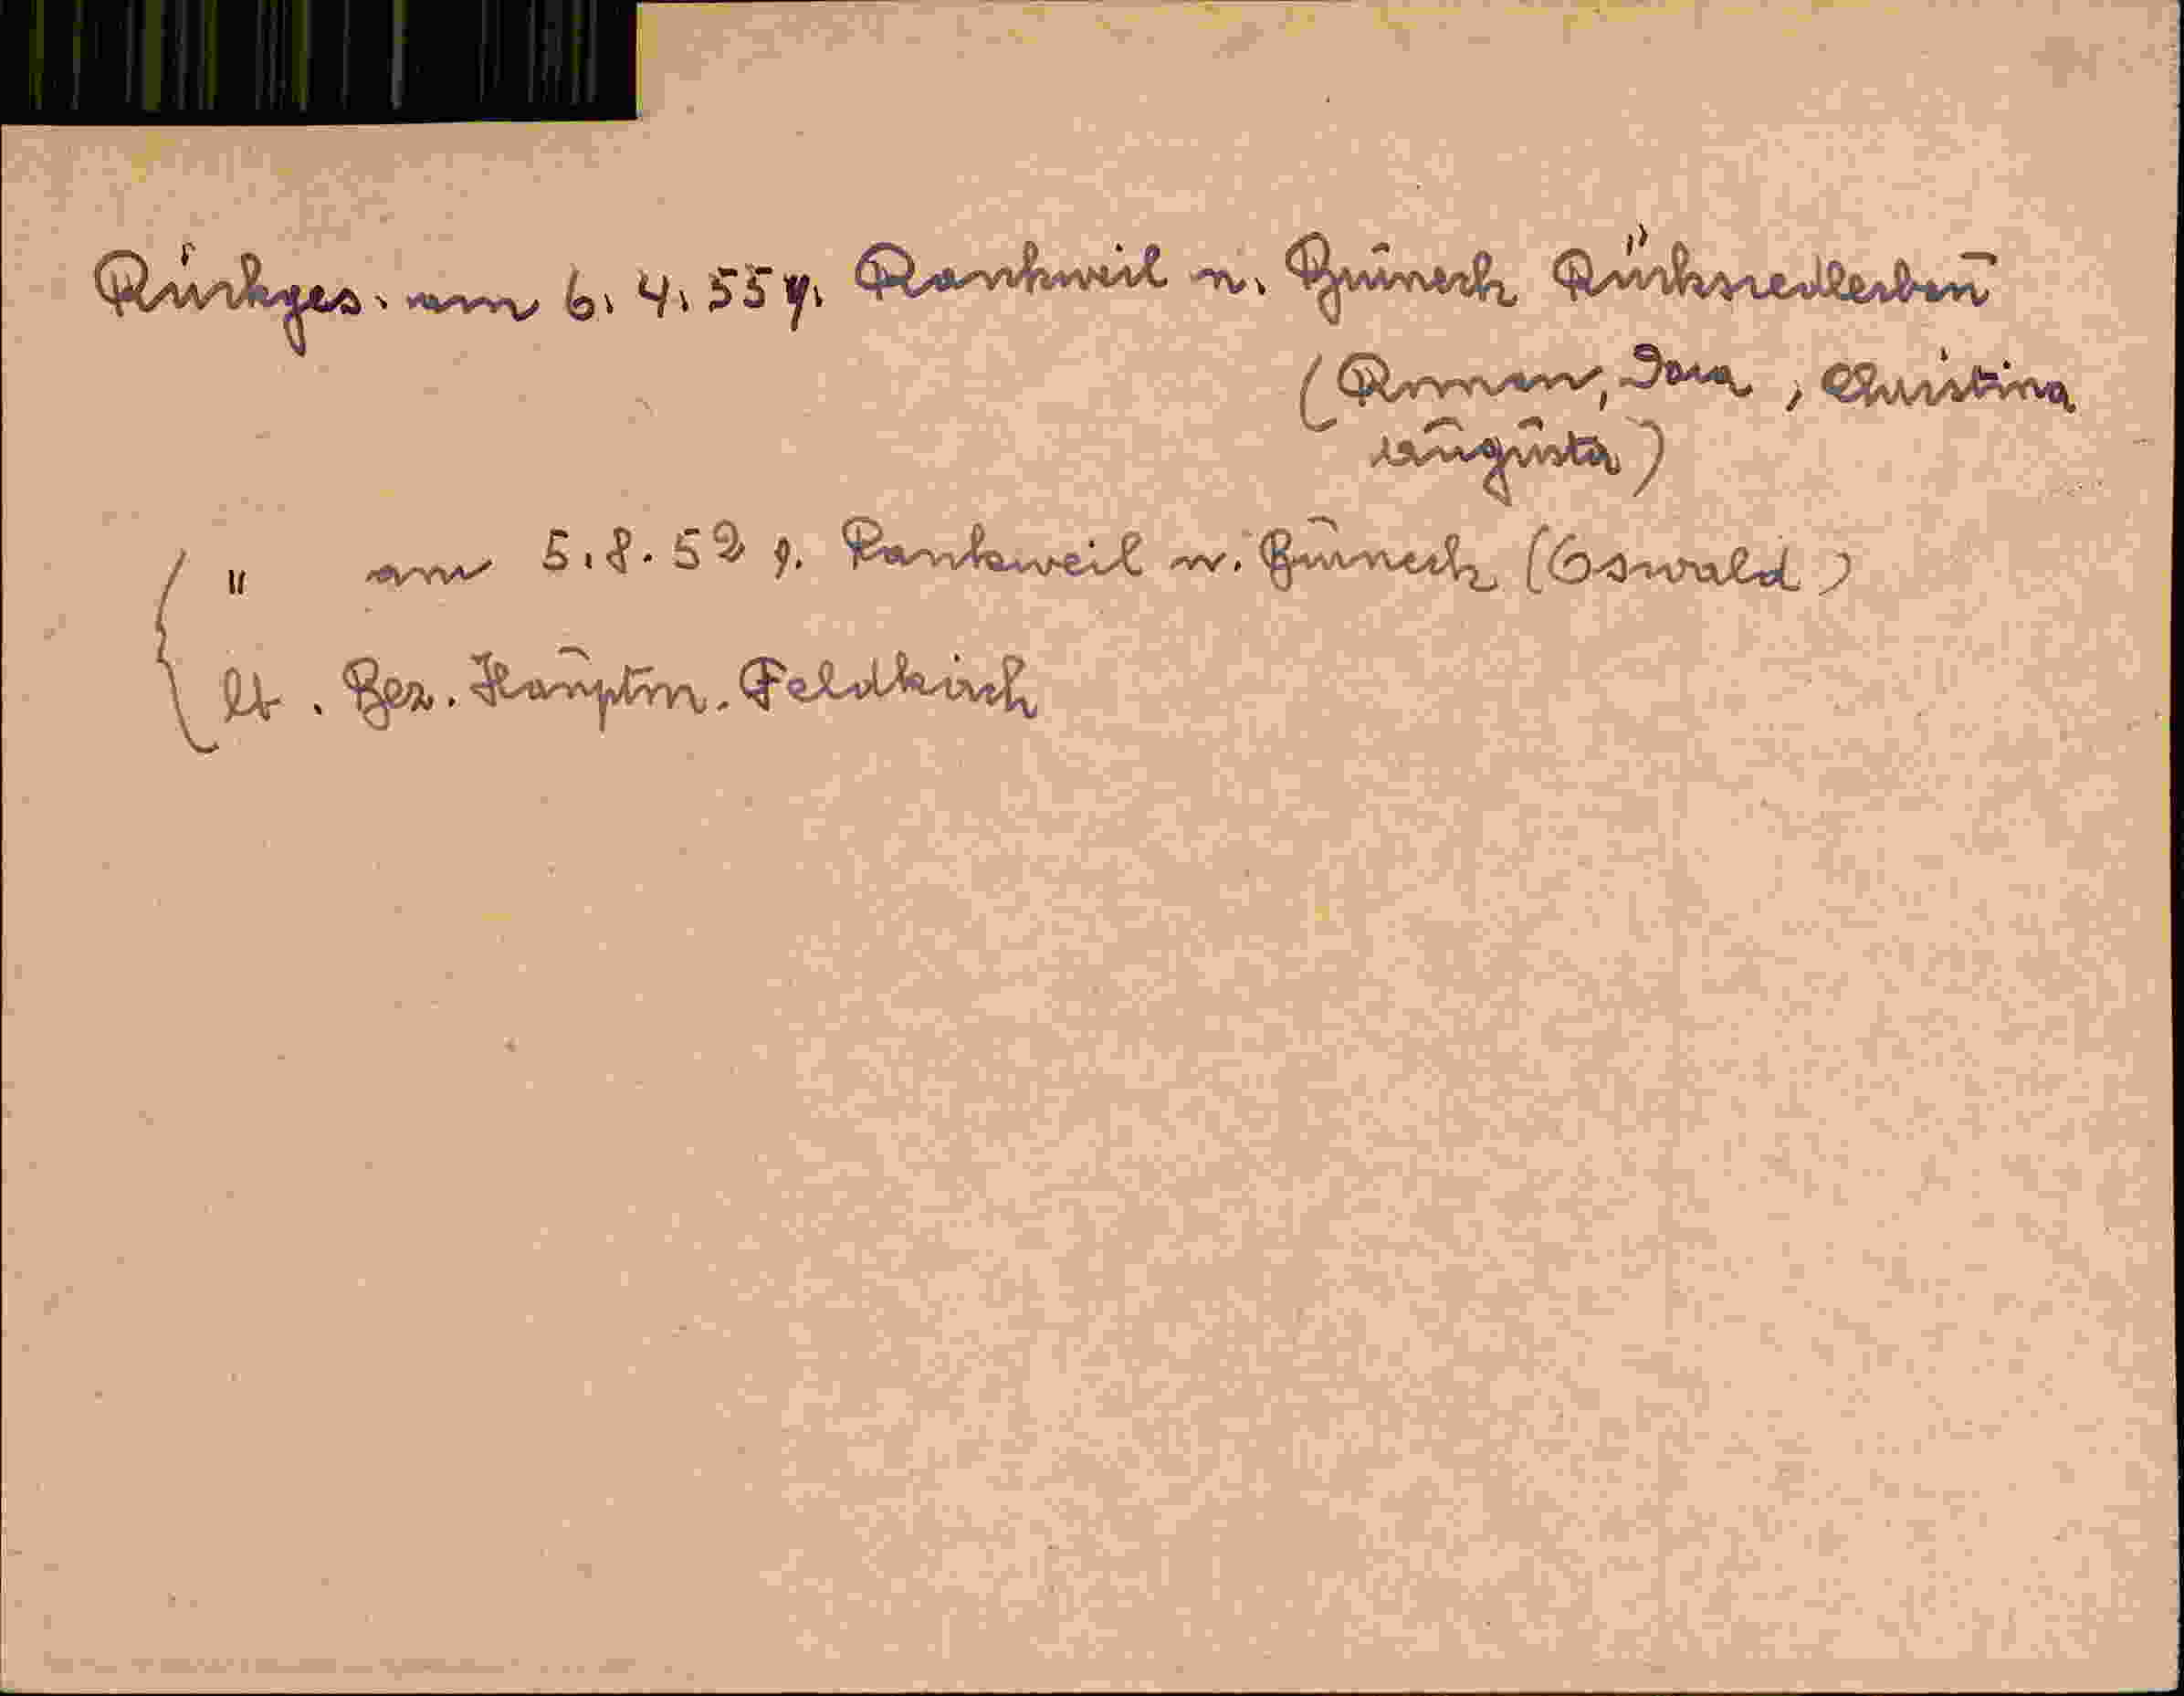 Rückges. am 6.4.55 v. Rankweil n. Bruneck Rücksiedlerbau
(Roman, Dora, Christina
Augusta)
" am 5.8.52 v. Rankweil n. Bruneck (Oswald)
lt. Bez. Hauptm. Feldkirch